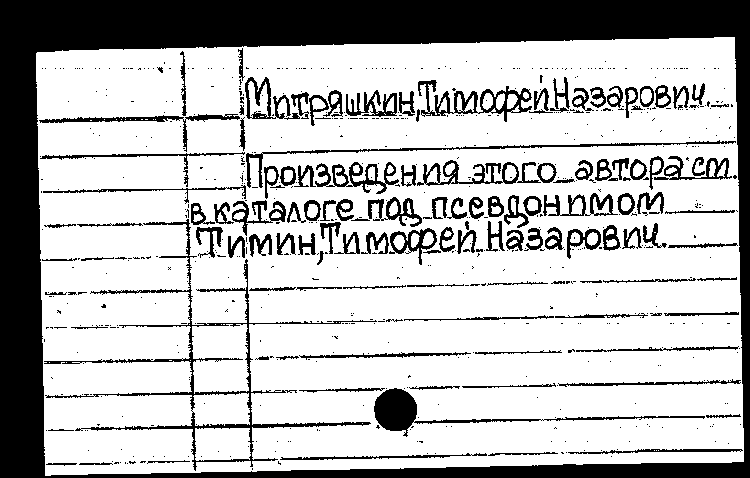 Митряшкин, Тимофей Назарович.
Произведения этого автора см.
в каталоге под псевдонимом
Тимин, Тимофей Назарович.